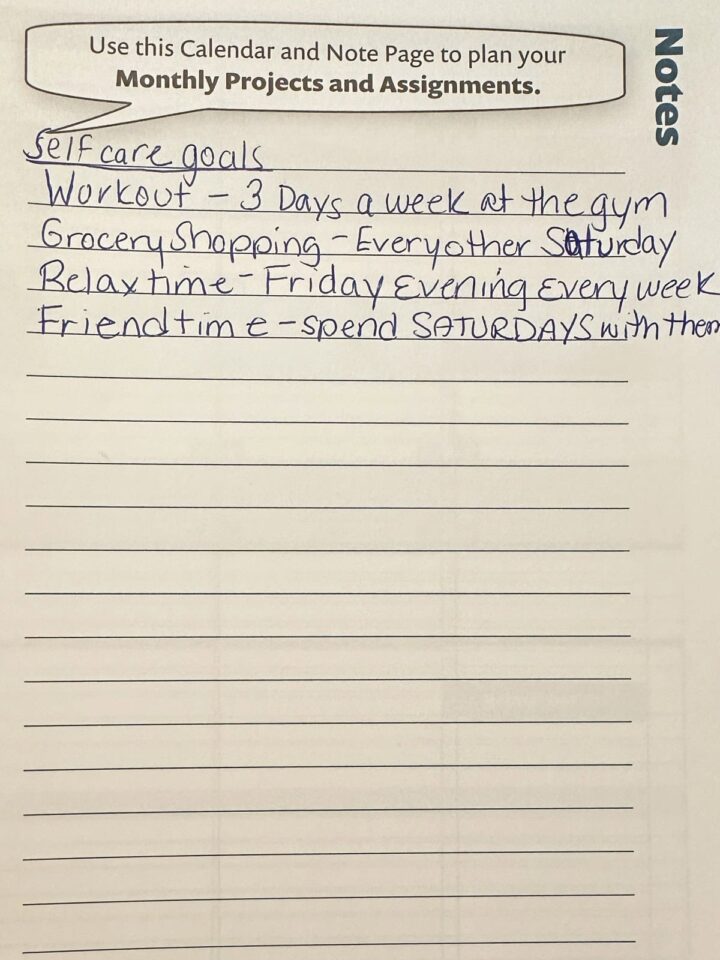 Use this Calendar and Note Page to plan your
Monthly Projects and Assignments.
Notes
Self care goals
Workout - 3 Days a week at the gym
Grocery Shopping - Every other Saturday
Relax time - Friday Evening Every week
Friend time - spend SATURDAYS with them